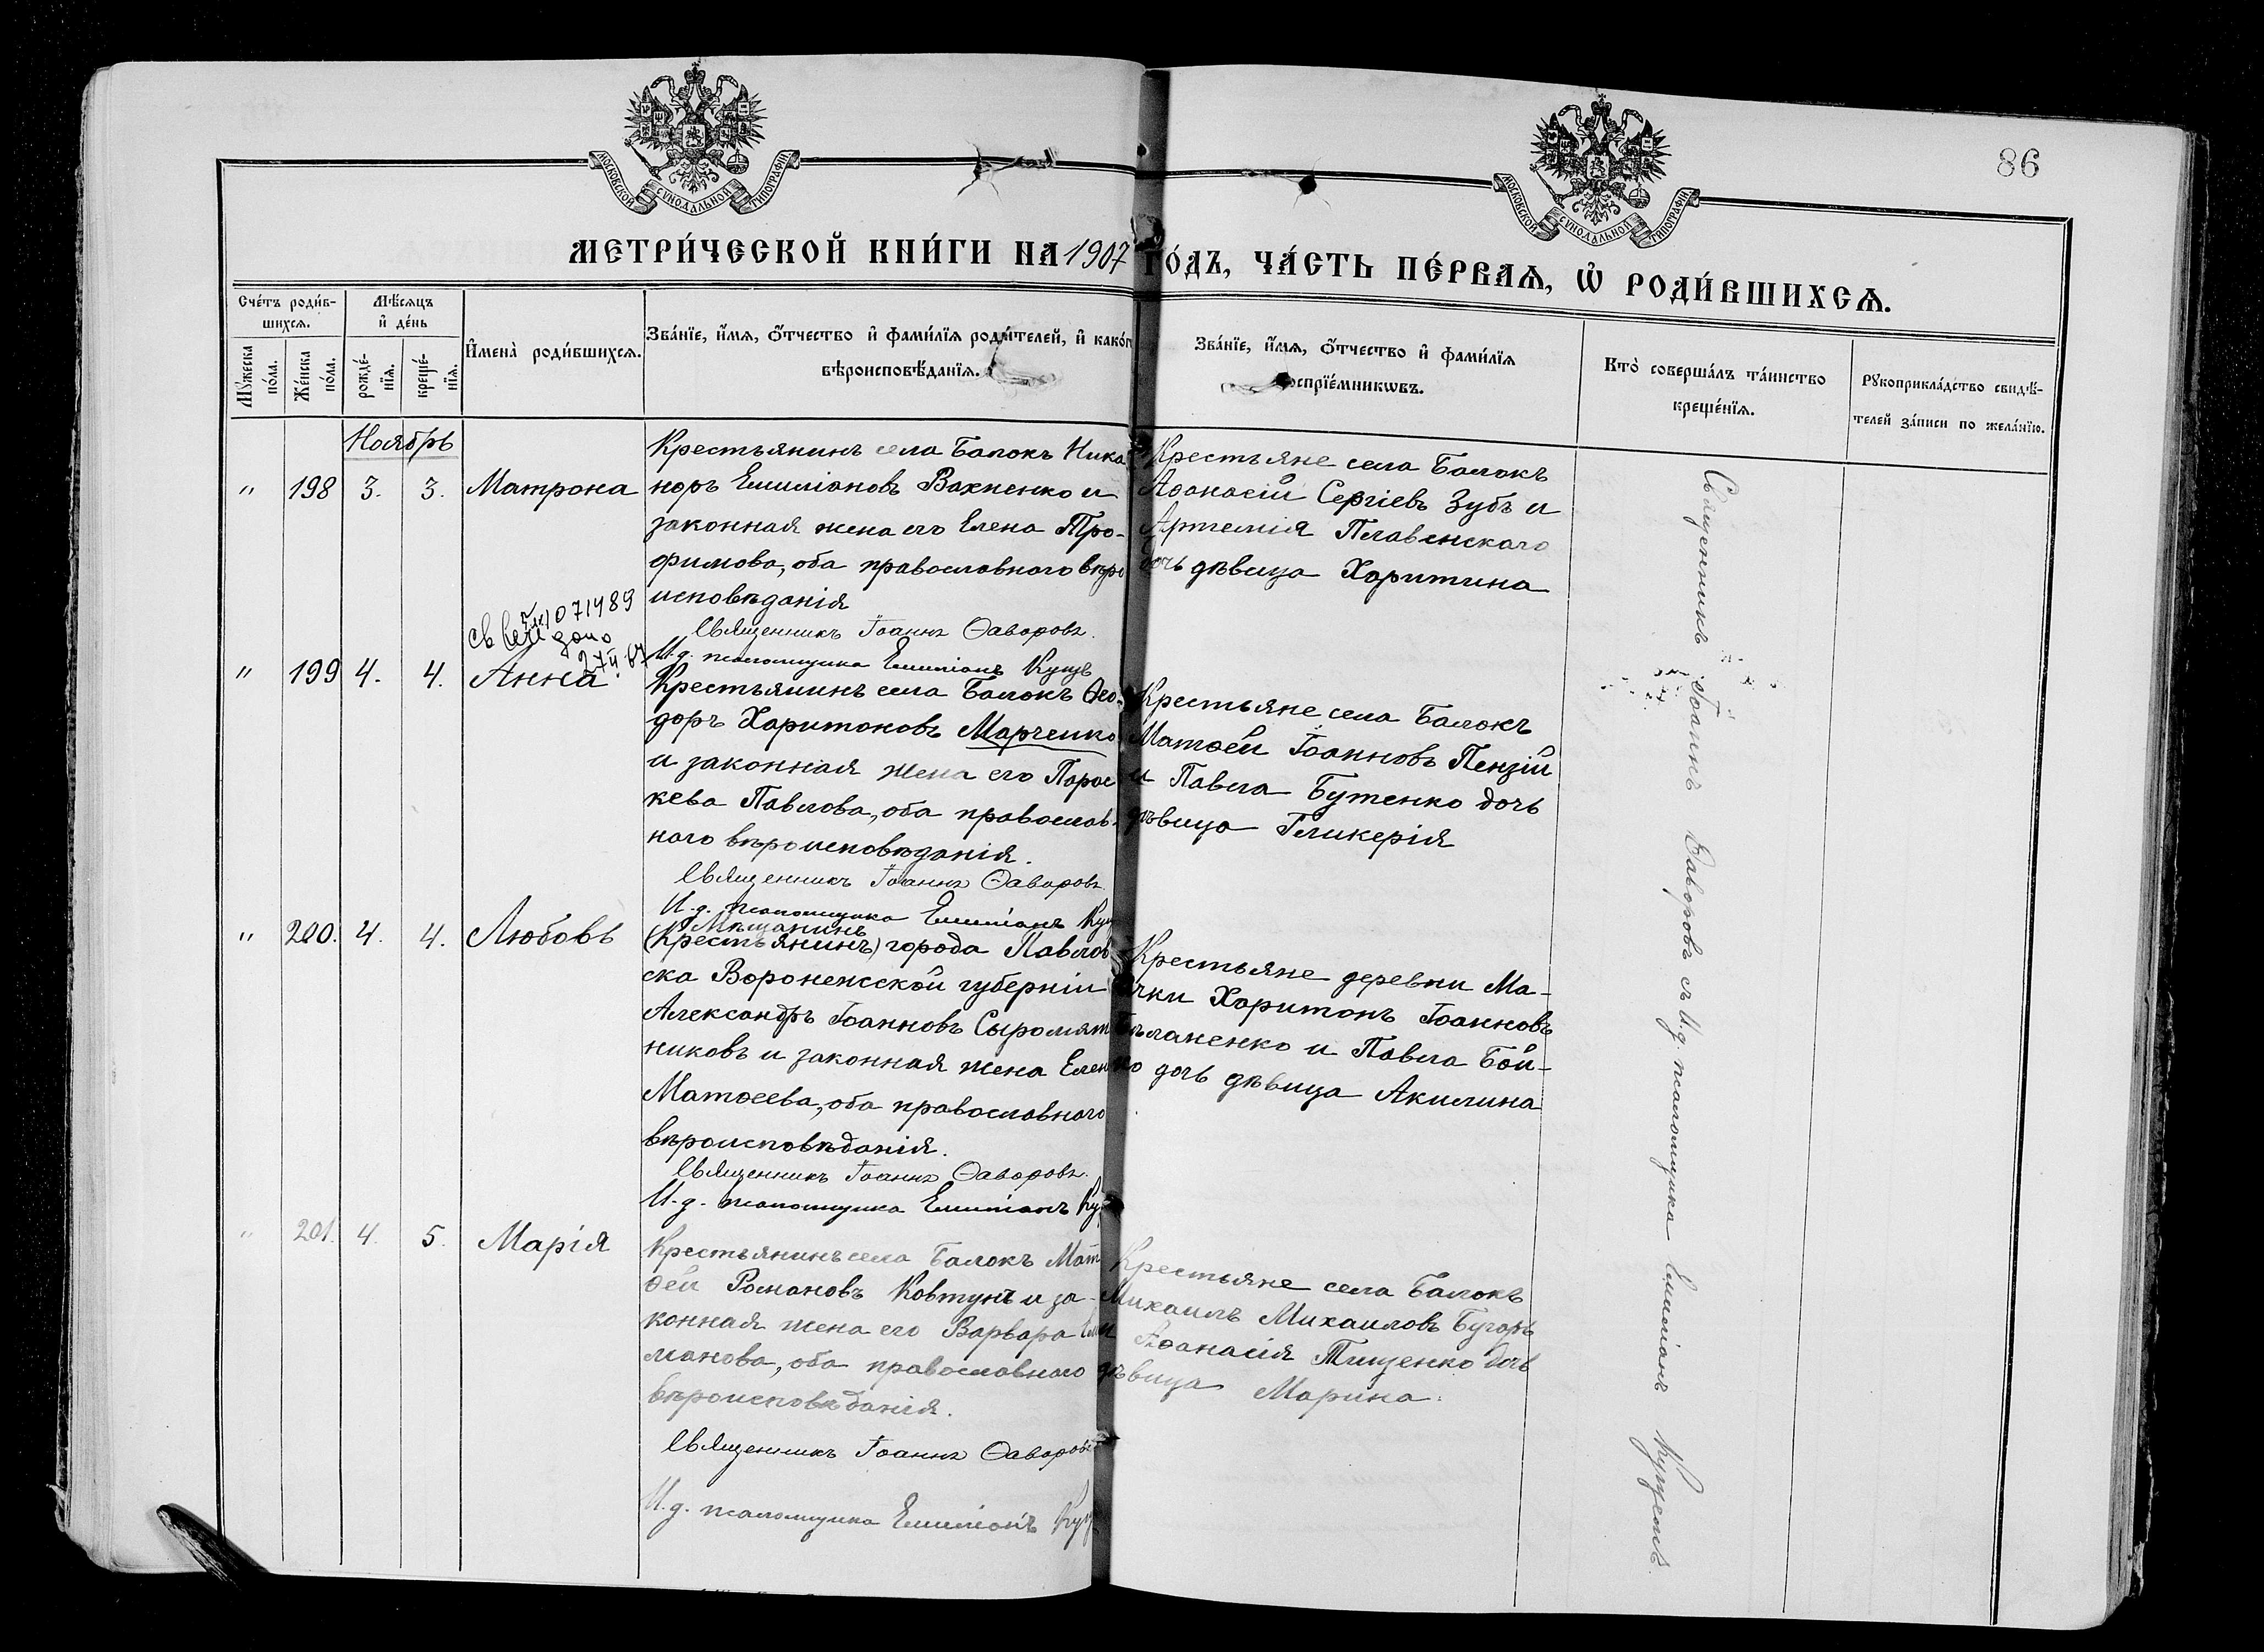 86
МОСКОВСКОЙ СѴНОДАЛЬНОЙ ТИПОГРАФІИ
МОСКОВСКОЙ СѴНОДАЛЬНОЙ ТИПОГРАФІИ
МЕТРИ́ЧЕСКОЙ КНИ́ГИ НА 1907 ГО́ДЪ, ЧА́СТЬ ПЕ́РВАѦ, Ѽ РОДИ́ВШИХСѦ.
Сче́тъ роди́в-
шихсѧ.
Мꙋ́жеска по́ла.
Же́нска по́ла.
Мѣ́сѧцъ
и҆ де́нь
рожде́-
нїѧ.
креще́-
нїѧ.
И҆мена̀ роди́вшихсѧ.
Зва́нїе, и҆́мѧ, ѻ҆́тчество и҆ фами́лїѧ роди́телей, и҆ како́г
вѣроисповѣ́данїѧ.
Зва́нїе, и҆́мѧ, ѻ҆́тчество и҆ фами́лїѧ
оспрїе́мникѡвъ.
Кто̀ соверша́лъ та́инство
креще́нїѧ.
Рꙋкоприкла́дство свидѣ́-
телей за́писи по жела́нїю.
Ноябрь
" 198 3. 3. Матрона
Крестьянинъ села Балокъ Ника
норъ Емиліановъ Вахненко и
законная жена его Елена Тро-
фимова, оба православнаго вѣро
исповѣданія
Священникъ Іоаннъ Ѳаворовъ.
И.д. псаломщика Емиліанъ Куще
Крестьяне села Балокъ
Аѳанасій Сергіевъ Зубъ и
Артемія Плавенскаго
дочь дѣвица Харитина
071489
27 II 67
" 199 4. 4. Анна
Крестьянинъ села Балокъ Ѳео-
доръ Харитоновъ Марченко
и законная жена его Парас
кева Павлова, оба православ-
наго вѣроисповѣданія.
Священникъ Іоаннъ Ѳаворовъ.
И.д. псаломщика Емиліанъ Кущ
Крестьяне села Балокъ
Матѳей Іоанновъ Пензій
и Павла Бутенко дочь
дѣвица Гликерія
" 200. 4. 4. Любовь
Мѣщанинъ
(Крестьянинъ) города Павлов
ска Воронежской губерніи
Александръ Іоанновъ Сыромят
никовъ и законная жена Елен
Матѳеева, оба православнаго
вѣроисповѣданія.
Священникъ Іоаннъ Ѳаворовъ.
И.д. псаломщика Емиліанъ Ку
Крестьяне деревни Ма-
чки Харитонъ Іоанновъ
и Павла Бой-
ко дочь дѣвица Акилина
" 201. 4. 5. Марія
Крестьянинъ села Балокъ Мат
ѳей Романовъ Ковтунъ и за-
конная жена его Варвара Ели
манова, оба православнаго
вѣроисповѣданія.
Священникъ Іоаннъ Ѳаворовъ
И.д. псаломщика Емиліанъ Кущ
Крестьяне села Балокъ
Михаилъ Михаиловъ Бугоръ
Аѳанасія Тищенко дочь
дѣвица Марина.
Священникъ Іоаннъ Ѳаворовъ съ И.д. псаломщика Емиліаномъ Кущемъ.